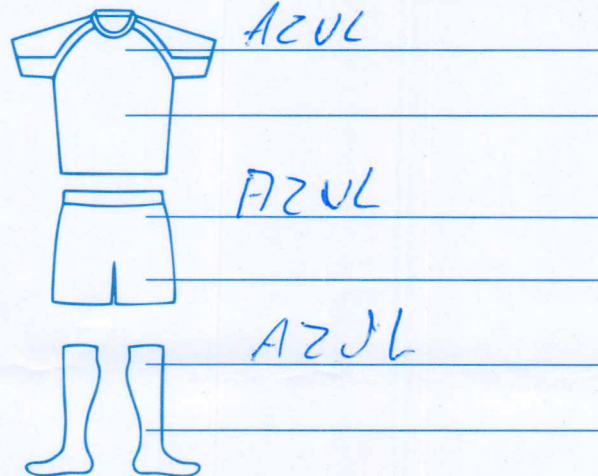 AZUL
AZUL
AZUL